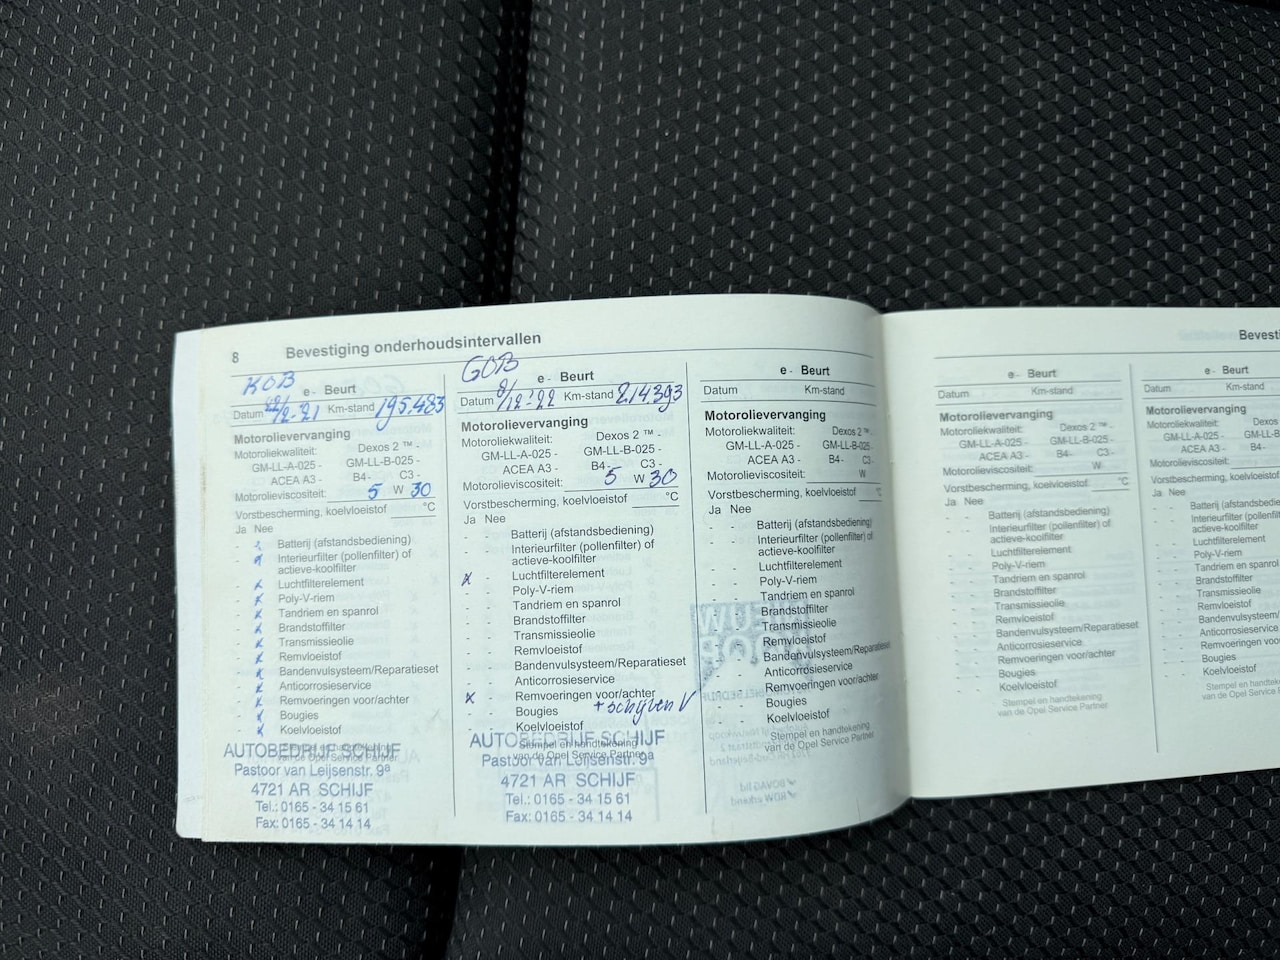 8 Bevestiging onderhoudsintervallen
KOB
e- Beurt
Datum 22/12-21 Km-stand 195.483
Motorolievervanging
Motoroliekwaliteit: Dexos 2 ™ -
GM-LL-A-025 - GM-LL-B-025 -
ACEA A3 - B4- C3 -
Motorolieviscositeit: 5 W 30
Vorstbescherming, koelvloeistof °C
Ja Nee
- x Batterij (afstandsbediening)
- x Interieurfilter (pollenfilter) of
actieve-koolfilter
- x Luchtfilterelement
- x Poly-V-riem
- x Tandriem en spanrol
- x Brandstoffilter
- x Transmissieolie
- x Remvloeistof
- x Bandenvulsysteem/Reparatieset
- x Anticorrosieservice
- x Remvoeringen voor/achter
- x Bougies
- x Koelvloeistof
Stempel en handtekening
van de Opel Service Partner
AUTOBEDRIJF SCHIJF
Pastoor van Leijsenstr. 9a
4721 AR SCHIJF
Tel.: 0165 - 34 15 61
Fax: 0165 - 34 14 14
GOB
e- Beurt
Datum 9/12-'22 Km-stand 214.393
Motorolievervanging
Motoroliekwaliteit: Dexos 2 ™ -
GM-LL-A-025 - GM-LL-B-025 -
ACEA A3 - B4- C3 -
Motorolieviscositeit: 5 W 30
Vorstbescherming, koelvloeistof °C
Ja Nee
- - Batterij (afstandsbediening)
- - Interieurfilter (pollenfilter) of
actieve-koolfilter
x - Luchtfilterelement
- - Poly-V-riem
- - Tandriem en spanrol
- - Brandstoffilter
- - Transmissieolie
- - Remvloeistof
- - Bandenvulsysteem/Reparatieset
- - Anticorrosieservice
x - Remvoeringen voor/achter
- - Bougies + schijven V
- - Koelvloeistof
Stempel en handtekening
van de Opel Service Partner
AUTOBEDRIJF SCHIJF
Pastoor van Leijsenstr. 9a
4721 AR SCHIJF
Tel.: 0165 - 34 15 61
Fax: 0165 - 34 14 14
e- Beurt
Datum Km-stand
Motorolievervanging
Motoroliekwaliteit: Dexos 2 ™ -
GM-LL-A-025 - GM-LL-B-025 -
ACEA A3 - B4- C3 -
Motorolieviscositeit: W
Vorstbescherming, koelvloeistof °C
Ja Nee
- - Batterij (afstandsbediening)
- - Interieurfilter (pollenfilter) of
actieve-koolfilter
- - Luchtfilterelement
- - Poly-V-riem
- - Tandriem en spanrol
- - Brandstoffilter
- - Transmissieolie
- - Remvloeistof
- - Bandenvulsysteem/Reparatieset
- - Anticorrosieservice
- - Remvoeringen voor/achter
- - Bougies
- - Koelvloeistof
Stempel en handtekening
van de Opel Service Partner
Bevesti
e- Beurt
Datum Km-stand
Motorolievervanging
Motoroliekwaliteit: Dexos 2 ™ -
GM-LL-A-025 - GM-LL-B-025 -
ACEA A3 - B4- C3 -
Motorolieviscositeit: W
Vorstbescherming, koelvloeistof °C
Ja Nee
- - Batterij (afstandsbediening)
- - Interieurfilter (pollenfilter) of
actieve-koolfilter
- - Luchtfilterelement
- - Poly-V-riem
- - Tandriem en spanrol
- - Brandstoffilter
- - Transmissieolie
- - Remvloeistof
- - Bandenvulsysteem/Reparatieset
- - Anticorrosieservice
- - Remvoeringen voor/achter
- - Bougies
- - Koelvloeistof
Stempel en handtekening
van de Opel Service Partner
e- Beurt
Datum Km-stand
Motorolievervanging
Motoroliekwaliteit: Dexos
GM-LL-A-025 - GM-LL-B
ACEA A3 - B4-
Motorolieviscositeit:
Vorstbescherming, koelvloeistof
Ja Nee
- - Batterij (afstandsbedie
- - Interieurfilter (pollenfi
actieve-koolfilter
- - Luchtfilterelement
- - Poly-V-riem
- - Tandriem en spanrol
- - Brandstoffilter
- - Transmissieolie
- - Remvloeistof
- - Bandenvulsysteem/
- - Anticorrosieservice
- - Remvoeringen voor
- - Bougies
- - Koelvloeistof
Stempel en handteken
van de Opel Service Par